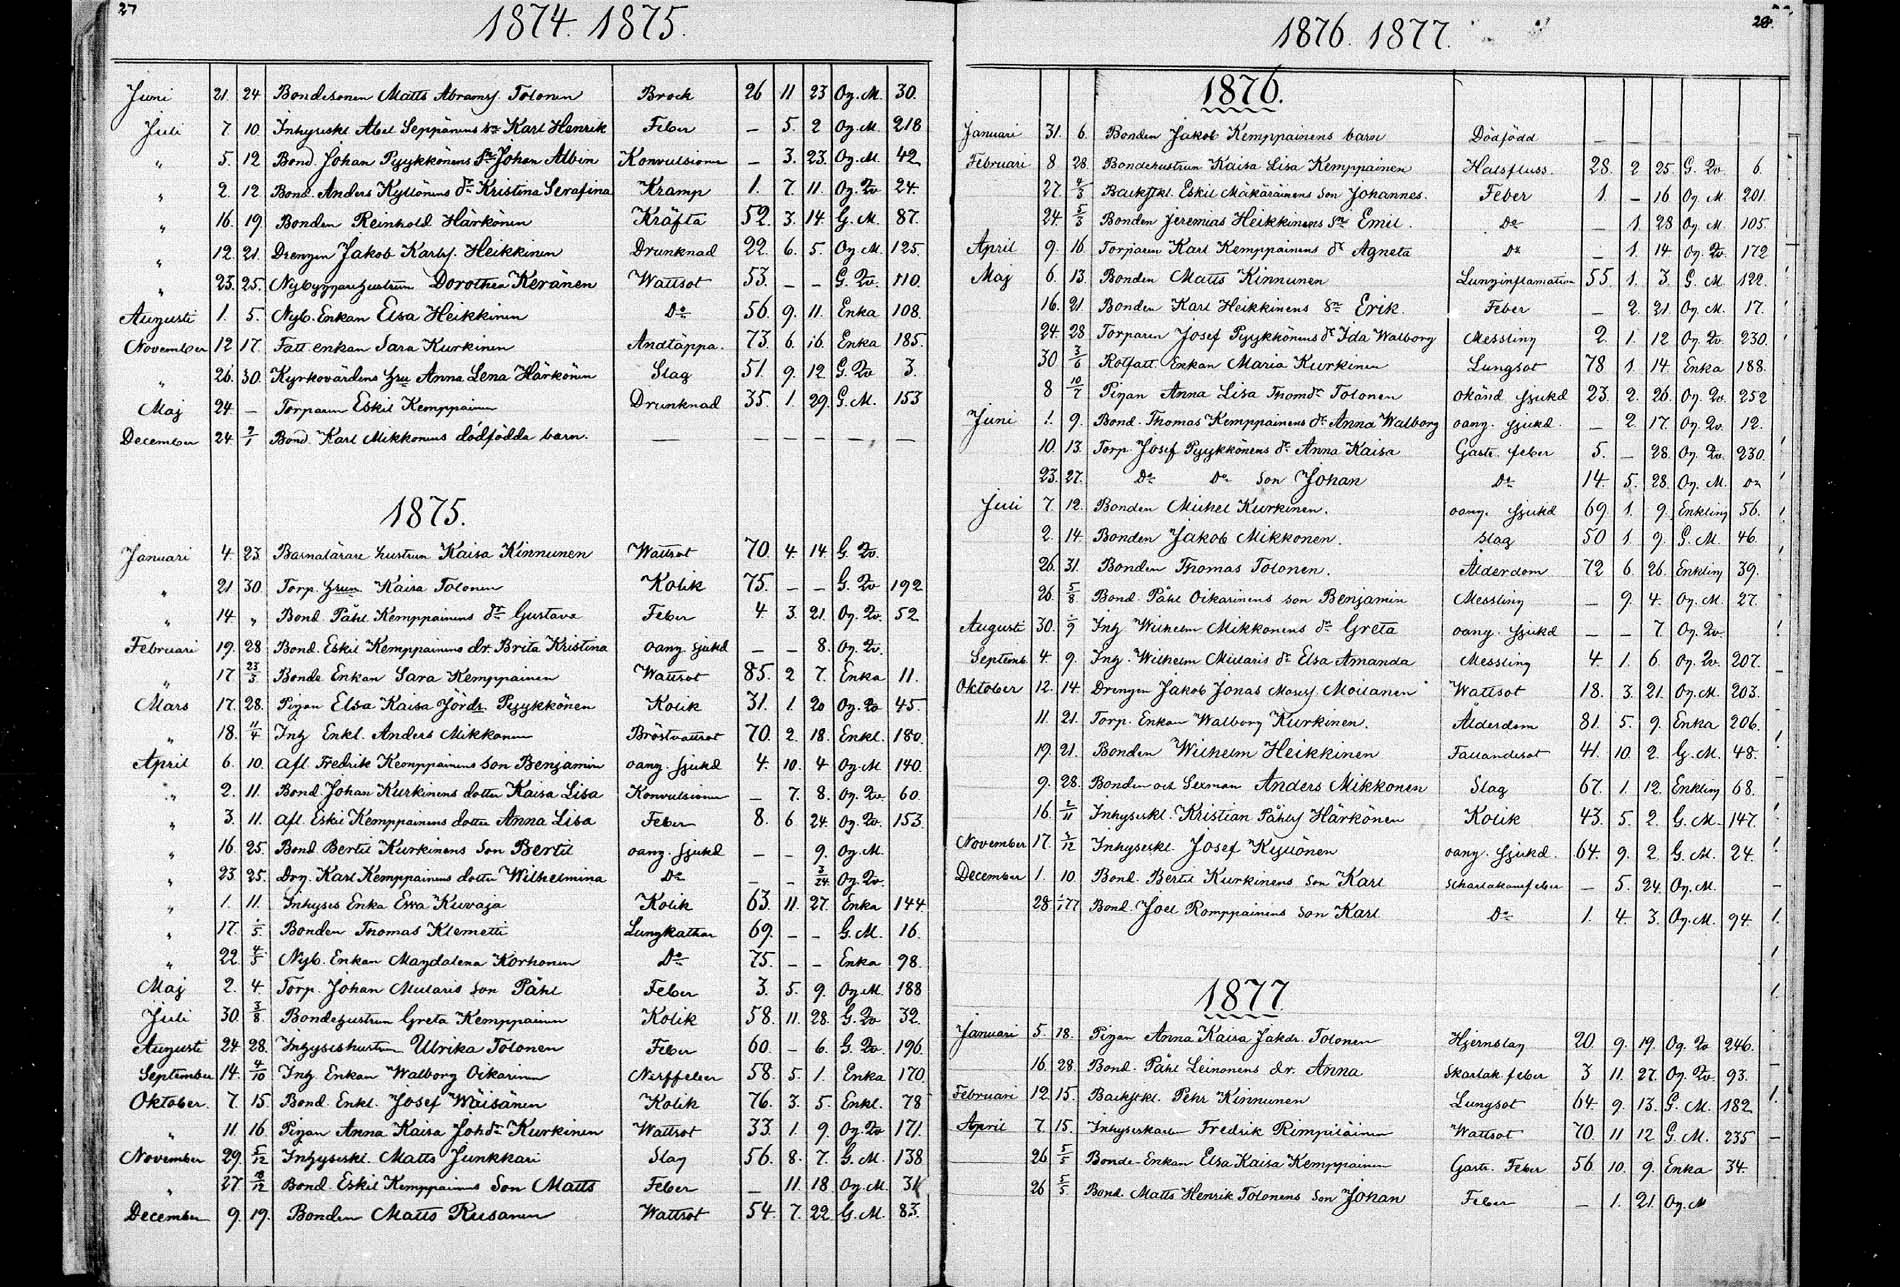 27
1874. 1875.
Juni 21. 24 Bondesonen Matts Abramsf. Tolonen Brock 26 11 23 Og. M. 30.
Juli 7. 10. Inhyseskl Abel Seppänens Sn Karl Henrik Feber — 5. 2 Og. M. 218
" 5. 12 Bond. Johan Pyykkönens Sn Johan Albin Konvulsioner — 3. 23. Og. M. 42
" 2. 12 Bond. Anders Kyllönens dr Kristina Serafina Kramp 1. 7. 11. Og. Qv. 24.
" 16. 19. Bonden Reinhold Härkönen Kräfta 52. 3. 14 G. M. 87.
" 12. 21. Drengen Jakob Karlsf. Heikkinen Drunknad 22. 6. 5. Og. M. 125.
" 23. 25. Nybyggarehustrun Dorothea Keränen Wattsot 53. — — G. Qv. 110.
Augusti 1. 5. Nyb. Enkan Elsa Heikkinen Do 56. 9. 11. Enka 108.
November 12 17. Fatt. enkan Sara Kurkinen Andtäppa. 73. 6. 16. Enka 185.
" 26. 30. Kyrkovärdens hru Anna Lena Härkönen Slag 51. 9. 12 G. Qv 3.
Maj 24 — Torparen Eskil Kemppainen Drunknad 35. 1. 29. G. M. 153
December 24 2/1 Bond. Karl Mikkonens dödfödda barn. — — — — — —
1875.
Januari 4. 23. Barnalärare hustrun Kaisa Kinnunen Wattsot 70. 4. 14 G. Qv.
" 21 30. Torp. hrun Kaisa Tolonen Kolik 75. — — G. Qv 192
" 14 " Bond Påhl Kemppainens dr Gustava Feber 4. 3. 21. Og. Qv. 52
Februari 19. 28 Bond. Eskil Kemppainens dr. Brita Kristina oang. sjukd — — 8. Og. Qv.
" 17 23/3 Bonde Enkan Sara Kemppainen Wattsot 85. 2 7. Enka 11.
Mars 17. 28. Pigan Elsa Kaisa Jördr. Pyykkönen Kolik 31. 1. 20 Og. Qv 45.
" 18. 11/4 Inh Enkl. Anders Mikkonen Bröstvattsot 70. 2. 18. Enkl. 180.
April 6. 10. Afl. Fredrik Kemppainens Son Benjamin oang. sjukd 4. 10. 4 Og. M 140.
" 2. 11. Bond Johan Kurkinens dotter Kaisa Lisa Konvulsioner — 7. 8. Og. Qv. 60.
" 3. 11. Afl. Eskil Kemppainens dotter Anna Lisa Feber 8. 6 24. Og. Qv. 153.
" 16. 25. Bond Bertil Kurkinens Son Bertil oang. sjukd — — 9. Og. M.
" 23 25. Drg. Karl Kemppainens dotter Wilhelmina Do — — 3/24. Og. Qv.
" 1. 11. Inhyses Enka Ewa Kuvaja Kolik 63. 11. 27. Enka 144.
" 17. 1/5. Bonden Thomas Klemetti Lungkathar 69. — — G. M. 16.
" 22. 4/5 Nyb. Enkan Magdalena Korhonen Do 75. — — Enka 98.
Maj 2. 4. Torp. Johan Mularis Son Påhl Feber 3. 5. 9. Og. M. 188
Juli 30. 3/8. Bondehustrun Greta Kemppainen Kolik 58. 11. 28. G. Qv 32.
Augusti 24. 28. Inhyseshustrun Ulrika Tolonen Feber 60. — 6. G. Qv. 196.
September 14. 4/10 Inh Enkan Walborg Oikarinen Nerffeber 58. 5. 1. Enka 170.
Oktober. 7. 15. Bond. Enkl. Josef Wäisänen Kolik 76. 3. 5. Enkl. 78
" 11. 16. Pigan Anna Kaisa Johdr Kurkinen Wattsot 33. 1. 9. Og. Qv 171.
November 29. 5/12 Inhyseskl. Matts Junkkari Slag 56. 8. 7. G. M. 138
" 27 18/12 Bond. Eskil Kemppainens Son Matts Feber — 11. 18 Og. M. 31
December 9. 19. Bonden Matts Rusanen Wattsot 54. 7. 22 G. M. 83.
28.
1876. 1877.
1876.
Januari 31. 6. Bonden Jakob Kemppainens barn Dödfödd — — —
Februari 8 28. Bondehustrun Kaisa Lisa Kemppainen Halsfluss. 28. 2 25 G. Qv. 6.
27. 4/3 Backstkl. Eskil Mäkäräinens Son Johannes. Feber 1. — 16 Og. M. 201.
24. 5/3 Bonden Jeremias Heikkinens Sn Emil. Do — 1. 28 Og. M. 105.
April 9. 16. Torparen Karl Kemppainens dr Agneta Do — 1. 14 Og. Qv. 172
Maj 6. 13. Bonden Matts Kinnunen Lunginflamation 55. 1. 3. G. M. 122.
16. 21. Bonden Karl Heikkinens Sn Erik. Feber — 2. 21. Og. M. 17.
24. 28 Torparen Josef Pyykkönens dr Ida Walborg Messling 2. 1. 12 Og. Qv. 230.
30 3/6 Rotfatt. Enkan Maria Kurkinen Lungsot 78 1. 14. Enka 188.
8 10/7 Pigan Anna Lisa Thomdr Tolonen okänd sjukd 23. 2. 26. Og. Qv. 252
Juni 1. 9. Bond. Thomas Kemppainens dr Anna Walborg oang. sjukd. — 2. 17. Og. Qv. 12.
10. 13. Torp Josef Pyykkönens dr Anna Kaisa Gastr. feber 5. — 28. Og. Qv. 230.
23. 27. Do Do Son Johan Do 14. 5. 28. Og. M. Do
Juli 7. 12. Bonden Mickel Kurkinen. oang. sjukd 69. 1. 9. Enkling 56.
2. 14. Bonden Jakob Mikkonen. Slag 50 1. 9. G. M. 46.
26. 31. Bonden Thomas Tolonen. Ålderdom 72 6. 26. Enkling 39.
26. 5/8 Bond. Påhl Oikarinens Son Benjamin Messling — 9. 4. Og. M. 27.
Augusti 30. 1/9 Inh Wilhelm Mikkonens dr Greta oang. sjukd — — 7 Og. Qv.
Septemb. 4. 9. Inh. Wilhelm Mularis dr Elsa Amanda Messling 4. 1. 6. Og. Qv. 207.
Oktober 12. 14. Drengen Jakob Jonas Mosesf Moilanen Wattsot 18. 3. 21. Og. M. 203.
11. 21. Torp. Enkan Walborg Kurkinen. Ålderdom 81. 5. 9. Enka 206.
19. 21. Bonden Wilhelm Heikkinen Fallandesot 41. 10. 2. G. M. 48.
9. 28. Bonden och Sexman Anders Mikkonen Slag 67. 1. 12. Enkling 68.
16. 2/11 Inhyseskl. Kristian Påhlsf Härkönen Kolik 43. 5. 2. G. M. 147.
November 17. 3/12 Inhyseskl. Josef Kyllönen oang. sjukd. 64. 9. 2. G. M. 24.
December 1. 10. Bond. Bertil Kurkinens Son Karl Scharlakansfeber — 5. 24. Og. M.
28 1/1 77 Bond. Joel Romppainens Son Karl Do 1. 4. 3. Og. M. 94.
1877.
Januari 5. 18. Pigan Anna Kaisa Jakdr. Tolonen Hjernslag 20. 9. 19. Og. Qv 246.
16. 28. Bond. Påhl Leinonens dr. Anna Skarlak. feber 3 11. 27. Og. Qv. 93.
Februari 12 15. Backstkl. Pehr Kinnunen Lungsot 64. 9. 13. G. M. 182
April 7. 15. Inhyseskarlen Fredrik Rimpiläinen Wattsot 70. 11 12 G. M. 235
26 5/5 Bonde-Enkan Elsa Kaisa Kemppainen Gastr. Feber 56 10. 9. Enka 34.
26 5/5 Bond. Matts Henrik Tolonens Son Johan Feber — 1. 21. Og. M